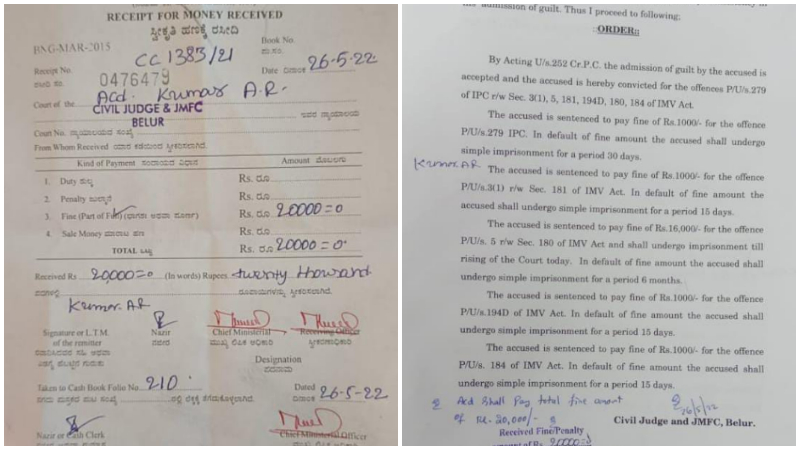 RECEIPT FOR MONEY RECEIVED
ಸ್ವೀಕೃತಿ ಹಣಕ್ಕೆ ರಸೀದಿ
BNG-MAR-2015
CC 1383/21
Book No.
Receipt No.
0476479
Date ದಿನಾಂಕ 26-5-22
Acd. Kumar A.R.
Court of the
CIVIL JUDGE & JMFC
BELUR
ಇವರ ನ್ಯಾಯಾಲಯ
Court No. ನ್ಯಾಯಾಲಯದ ಸಂಖ್ಯೆ
From Whom Received ಯಾರ ಕಡೆಯಿಂದ ಸ್ವೀಕರಿಸಲಾಗಿದೆ.
Kind of Payment ಸಂದಾಯದ ವಿಧಾನ Amount ಮೊಬಲಗು
1. Duty ಸುಲ್ಕ Rs. ರೂ
2. Penalty ಜುಲ್ಮಾನೆ Rs. ರೂ
3. Fine (Part of Full) (ಭಾಗಶಃ ಅಥವಾ ಪೂರ್ಣ) Rs. ರೂ 20000=0
4. Sale Money ಮಾರಾಟ ಹಣ Rs. ರೂ
TOTAL ಒಟ್ಟು Rs. ರೂ 20000=0
Received Rs 20,000=0 (In words) Rupees. twenty thousand
ರೂಪಾಯಿಗಳನ್ನು ಸ್ವೀಕರಿಸಲಾಗಿದೆ.
Kumar. A.R
Signature or L.T.M. Nazir Chief Ministerial Receiving Officer
of the remitter ನಜೀರ ಮುಖ್ಯ ಲಿಪಿಕ ಅಧಿಕಾರಿ ಸ್ವೀಕರಣಾಧಿಕಾರಿ
Designation
ಪದನಾಮ
Taken to Cash Book Folio No. 210 Dated
ದಿನಾಂಕ 26-5-22
Nazir or Cash Clerk Chief Ministerial Officer
admission of guilt. Thus I proceed to following;
::ORDER::
By Acting U/s.252 Cr.P.C. the admission of guilt by the accused is
accepted and the accused is hereby convicted for the offences P/U/s.279
of IPC r/w Sec. 3(1), 5, 181, 194D, 180, 184 of IMV Act.
The accused is sentenced to pay fine of Rs.1000/- for the offence
P/U/s.279 IPC. In default of fine amount the accused shall undergo
simple imprisonment for a period 30 days.
Kumar. A.R
The accused is sentenced to pay fine of Rs.1000/- for the offence
P/U/s.3(1) r/w Sec. 181 of IMV Act. In default of fine amount the
accused shall undergo simple imprisonment for a period 15 days.
The accused is sentenced to pay fine of Rs.16,000/- for the offence
P/U/s. 5 r/w Sec. 180 of IMV Act and shall undergo imprisonment till
rising of the Court today. In default of fine amount the accused shall
undergo simple imprisonment for a period 6 months.
The accused is sentenced to pay fine of Rs.1000/- for the offence
P/U/s.194D of IMV Act. In default of fine amount the accused shall
undergo simple imprisonment for a period 15 days.
The accused is sentenced to pay fine of Rs.1000/- for the offence
P/U/s. 184 of IMV Act. In default of fine amount the accused shall
undergo simple imprisonment for a period 15 days.
Acd Shall Pay total fine amont
of Rs. 20,000/-
26/5/22
Civil Judge and JMFC, Belur.
Received Fine/Penalty
amount of Rs. 20000=0